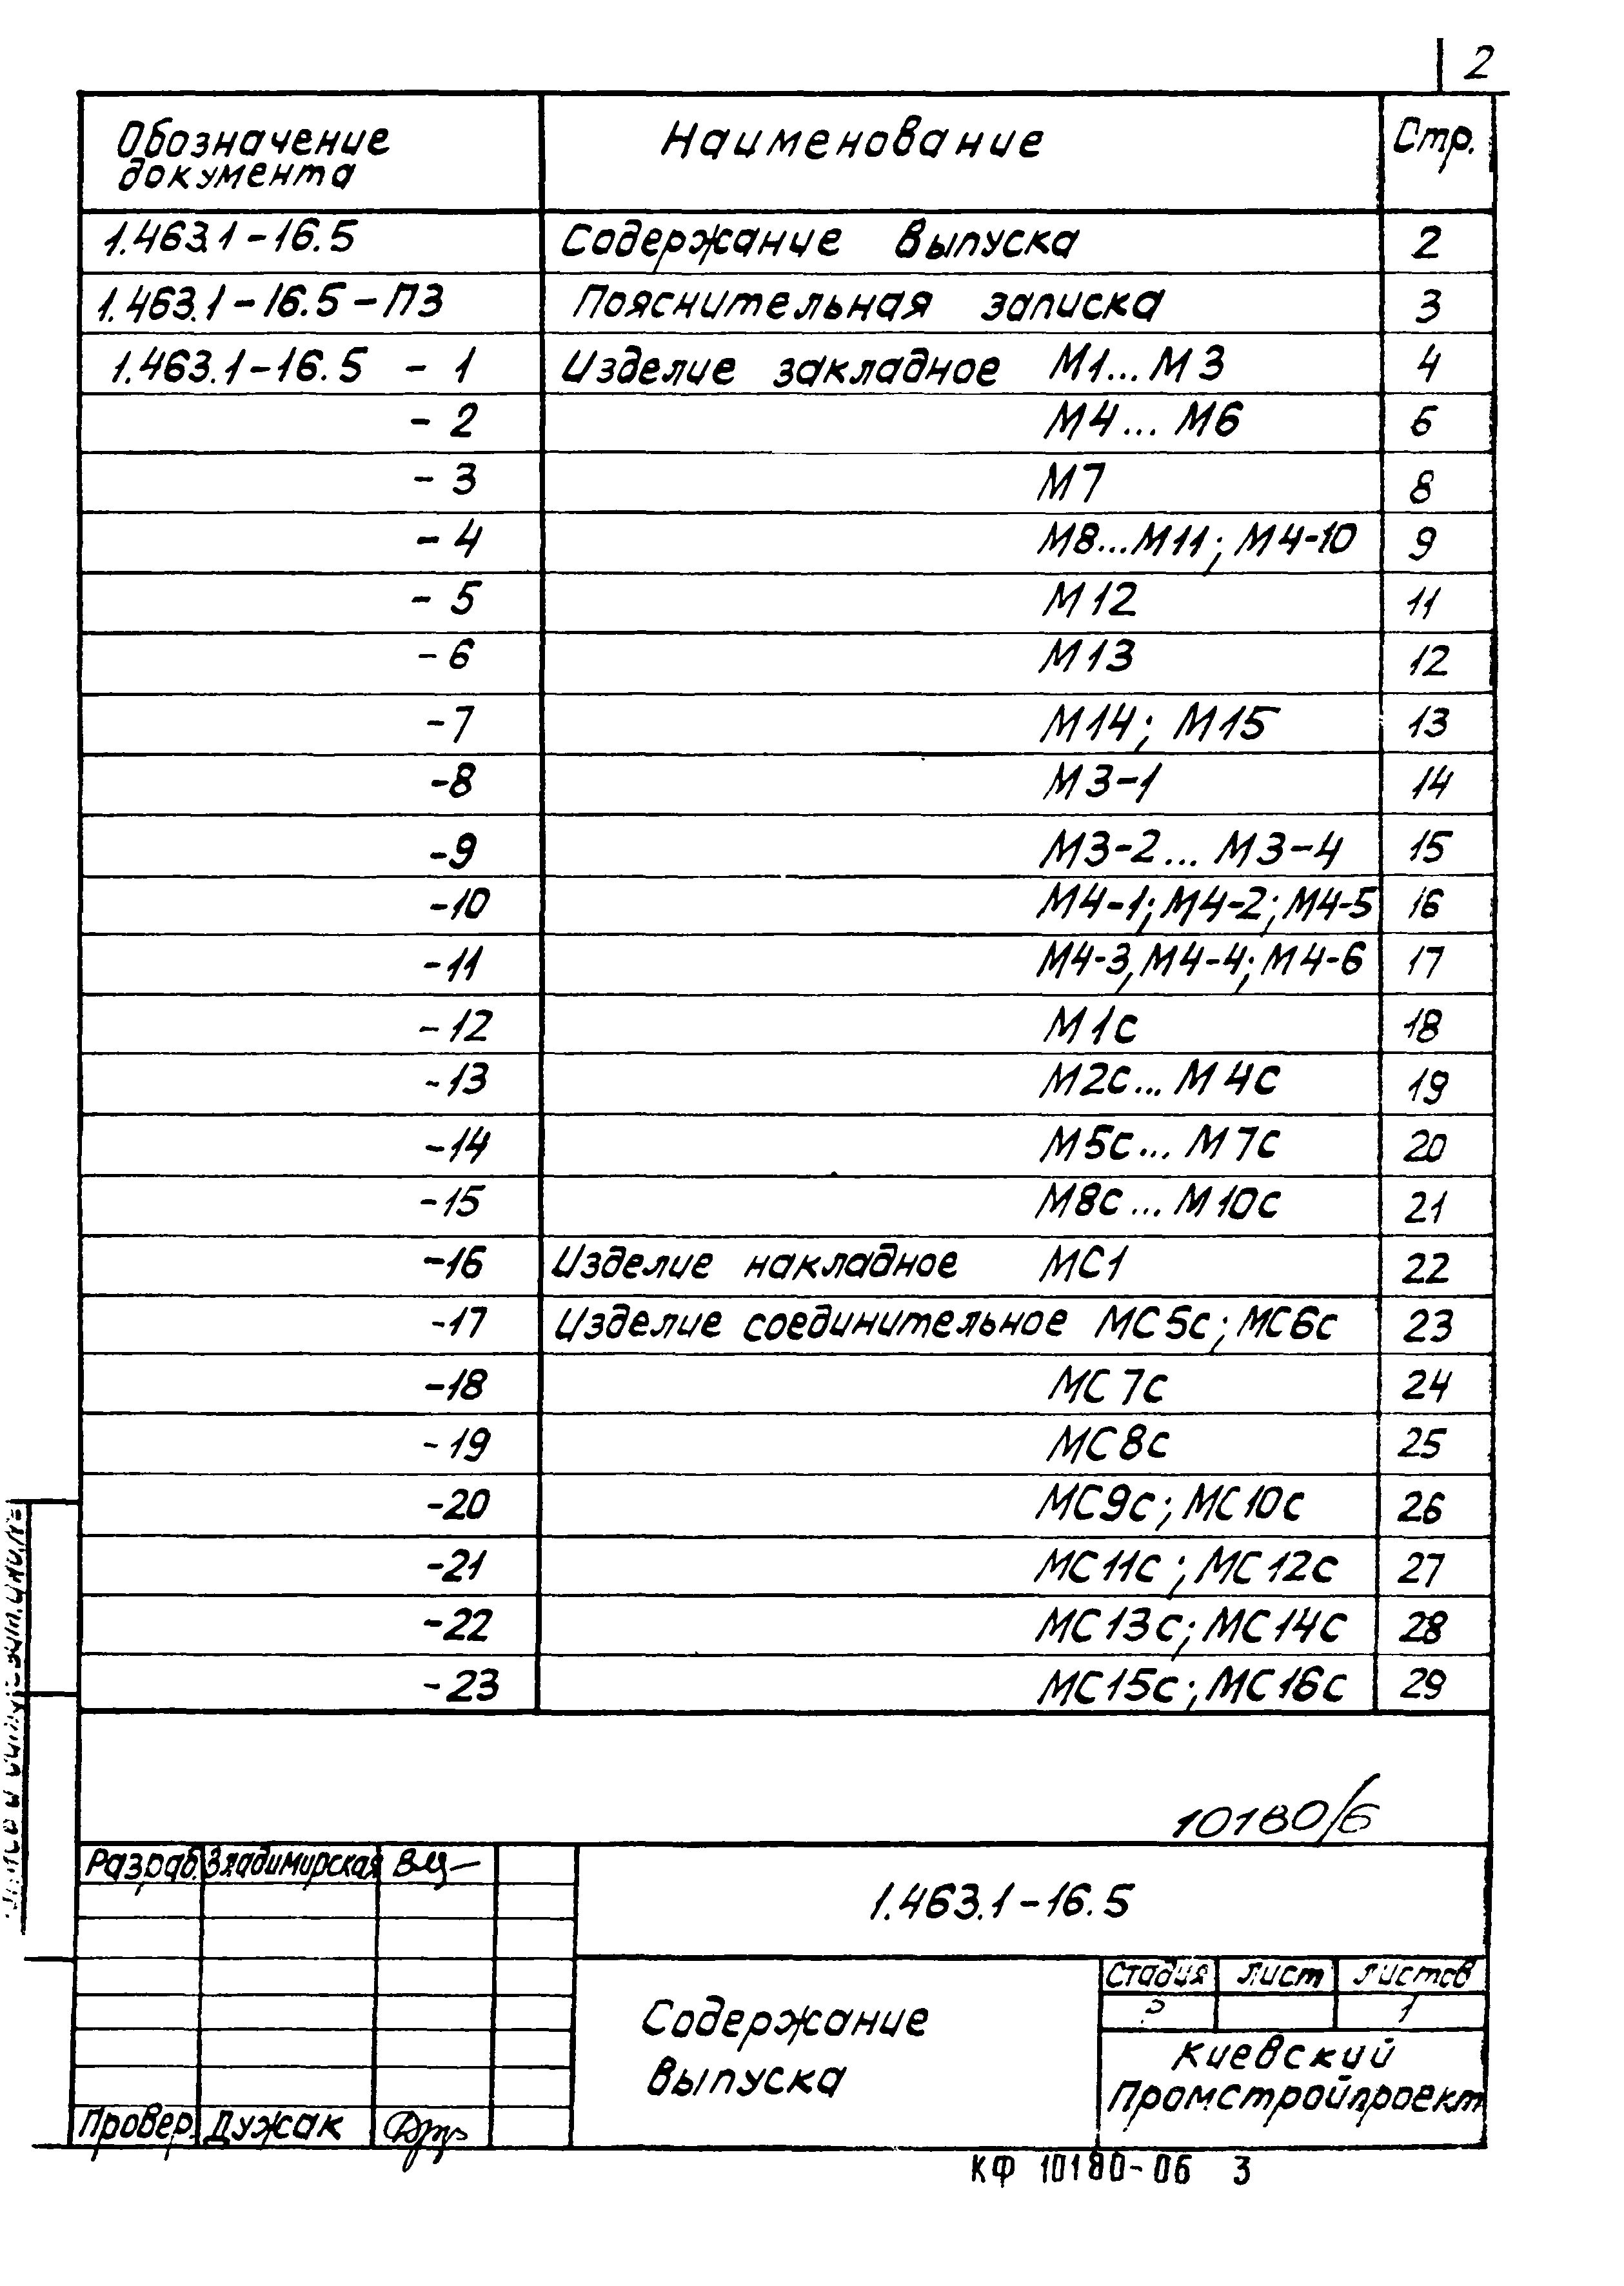 2
Обозначение документа Наименование Стр.
1.463.1-16.5 Содержание выпуска 2
1.463.1-16.5-ПЗ Пояснительная записка 3
1.463.1-16.5 - 1 Изделие закладное М1...М3 4
- 2 М4...М6 6
- 3 М7 8
- 4 М8...М11; М4-10 9
- 5 М12 11
- 6 М13 12
-7 М14; М15 13
-8 М3-1 14
-9 М3-2... М3-4 15
-10 М4-1; М4-2; М4-5 16
-11 М4-3, М4-4; М4-6 17
-12 М1с 18
-13 М2с... М4с 19
-14 М5с... М7с 20
-15 М8с... М10с 21
-16 Изделие накладное МС1 22
-17 Изделие соединительное МС5с; МС6с 23
-18 МС7с 24
-19 МС8с 25
-20 МС9с; МС10с 26
-21 МС11с; МС12с 27
-22 МС13с; МС14с 28
-23 МС15с; МС16с 29
10180/6
Разраб. Владимирская
1.463.1-16.5
Стадия Лист Листов
Р 1
Содержание
выпуска
Киевский
Промстройпроект
Провер. Дужак
КФ 10180-06 3